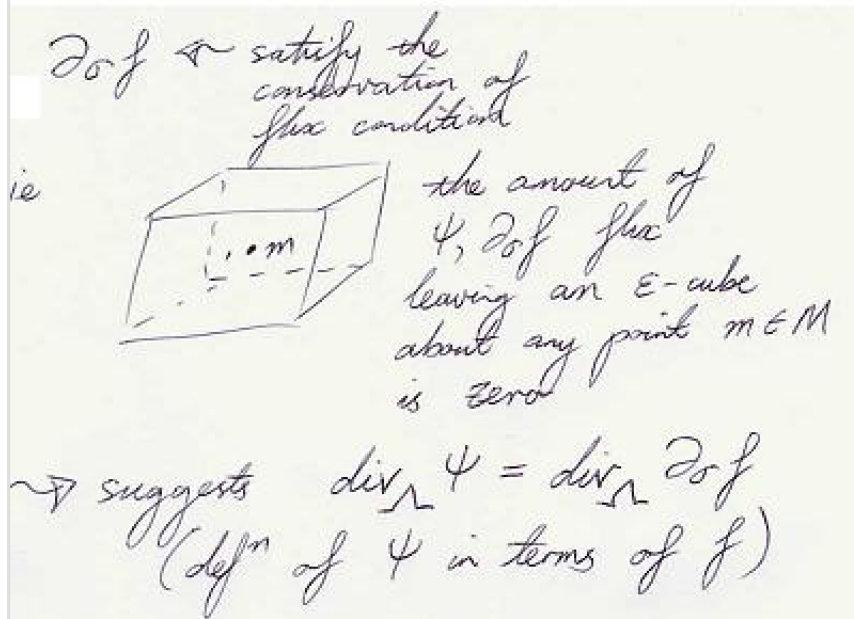 ∂σf ← satisfy the
conservation of
flux condition
ie
• m
the amount of
Ψ, ∂σf flux
leaving an ε-cube
about any point m ∈ M
is zero
⇝ suggests div_Ω Ψ = div_Ω ∂σf
(defⁿ of Ψ in terms of f)